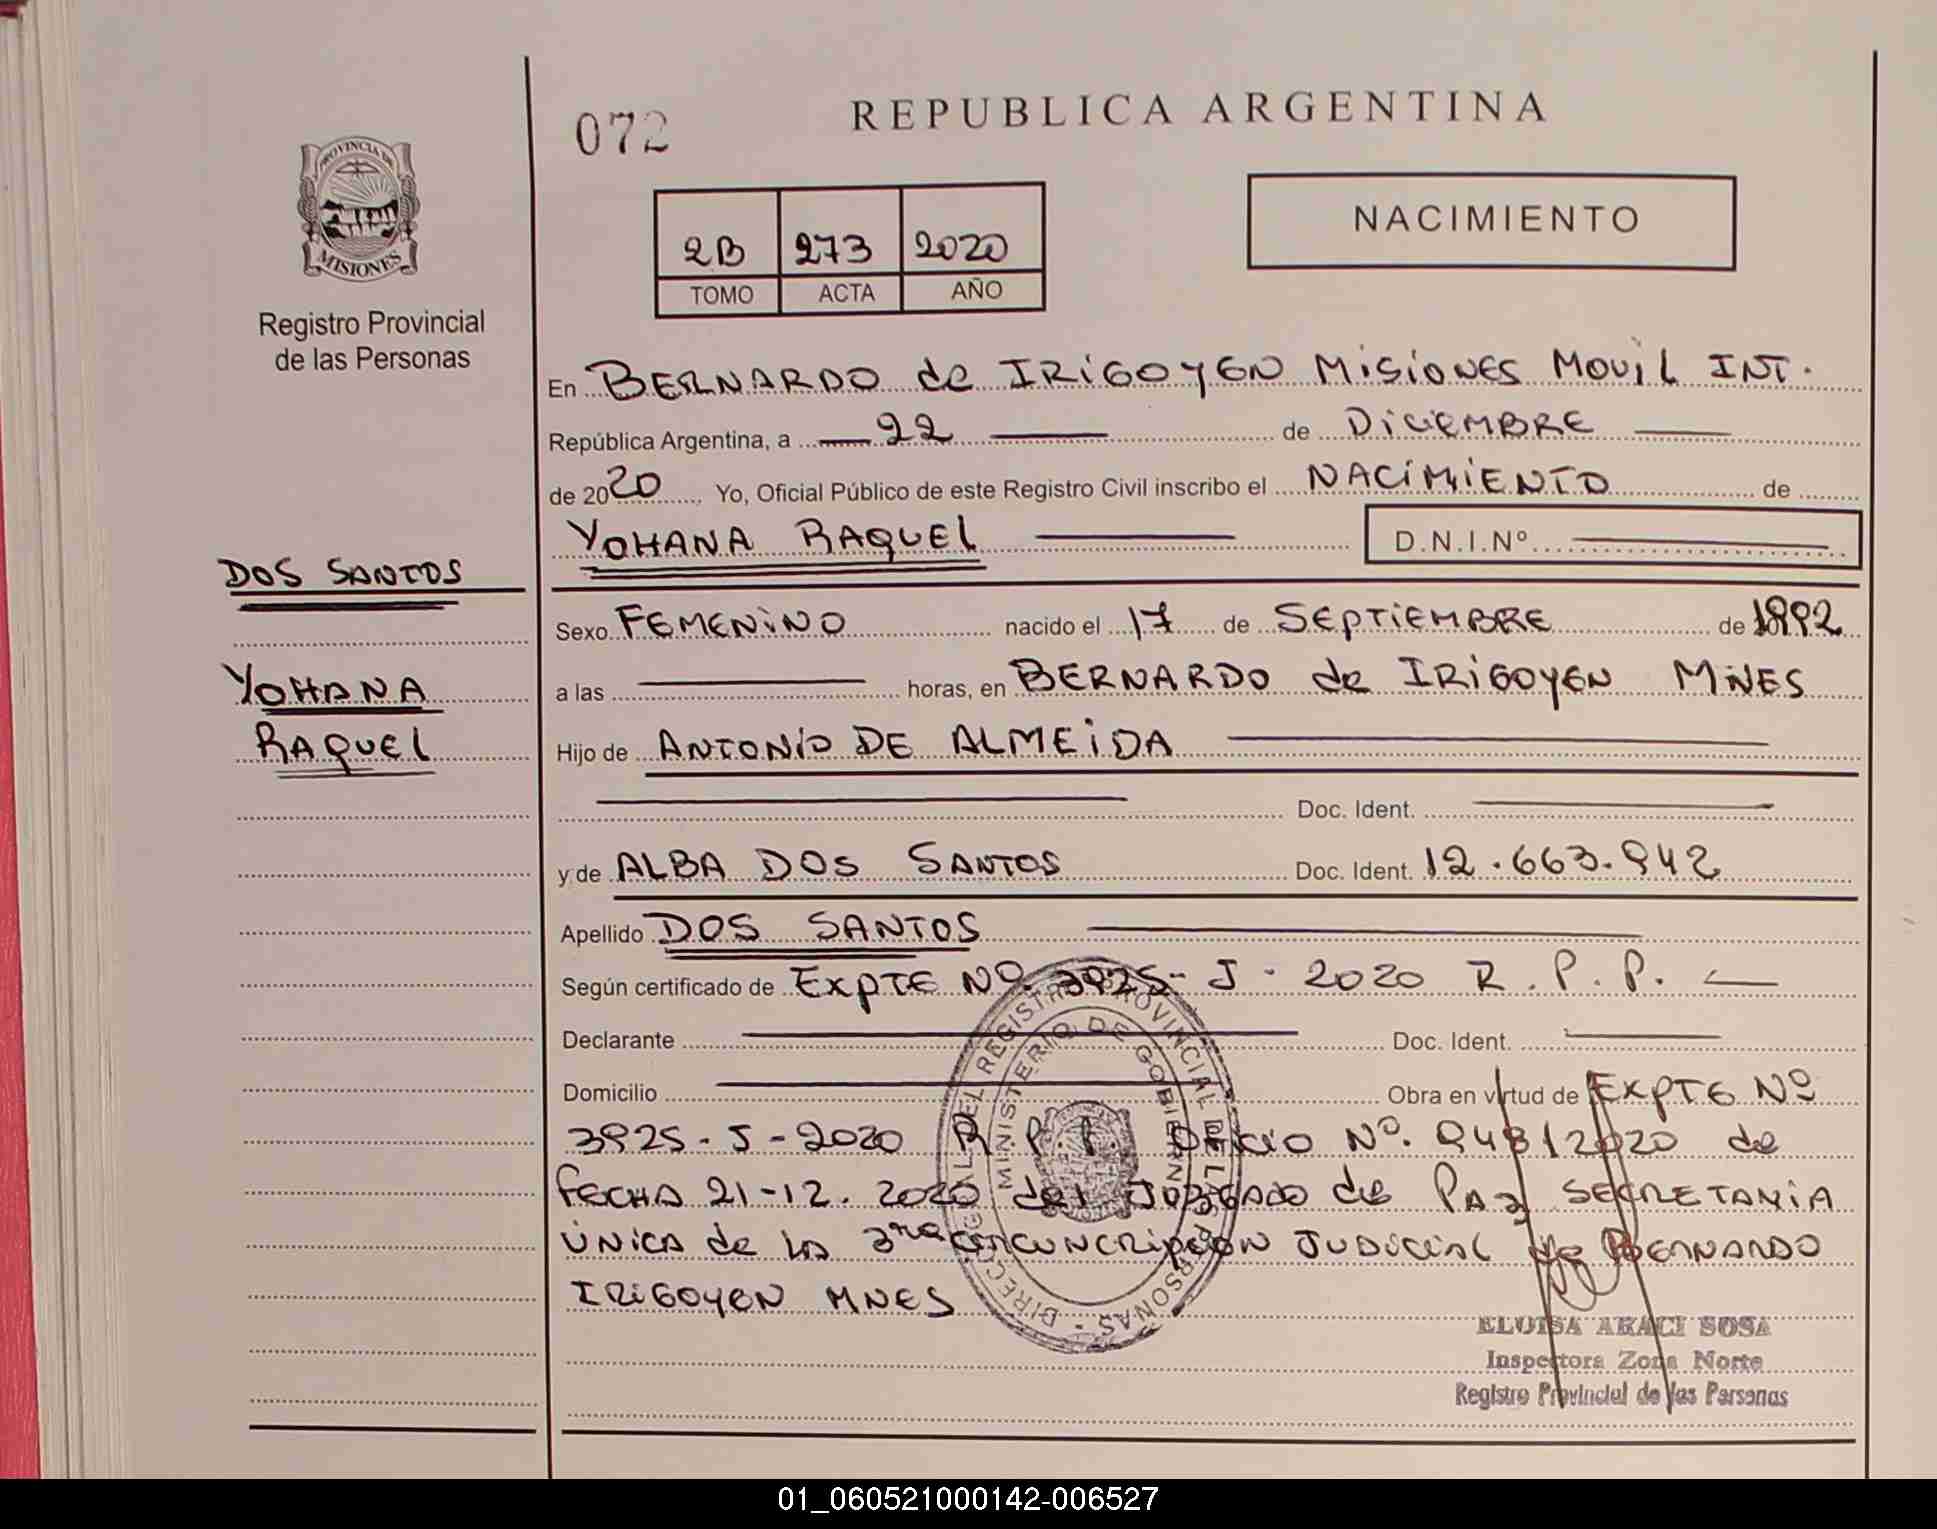 072
REPUBLICA ARGENTINA
PROVINCIA DE
MISIONES
Registro Provincial
de las Personas
2B 273 2020
TOMO ACTA AÑO
NACIMIENTO
En BERNARDO de IRIGOYEN MISIONES MOVIL INT.
República Argentina, a 22 de DICIEMBRE
de 2020 Yo, Oficial Público de este Registro Civil inscribo el NACIMIENTO de
YOHANA RAQUEL D.N.I.Nº
DOS SANTOS
YOHANA
RAQUEL
Sexo FEMENINO nacido el 17 de SEPTIEMBRE de 1992
a las horas, en BERNARDO de IRIGOYEN MNES
Hijo de ANTONIO DE ALMEIDA
Doc. Ident.
y de ALBA DOS SANTOS Doc. Ident. 12.663.942
Apellido DOS SANTOS
Según certificado de EXPTE Nº 3925-J-2020 R.P.P.
Declarante Doc. Ident.
Domicilio Obra en virtud de EXPTE Nº
3925-J-2020 R.P.P. OFICIO Nº. 948/2020 de
FECHA 21-12.2020 del JUZGADO de PAZ SECRETARIA
ÚNICA de LA 3ra CIRCUNCRIPCION JUDICIAL de BERNARDO
IRIGOYEN MNES
DIRECC GRAL DEL REGISTRO PROVINCIAL DE LAS PERSONAS
MINISTERIO DE GOBIERNO
ELOISA ARACI SOSA
Inspectora Zona Norte
Registro Provincial de las Personas
01_060521000142-006527